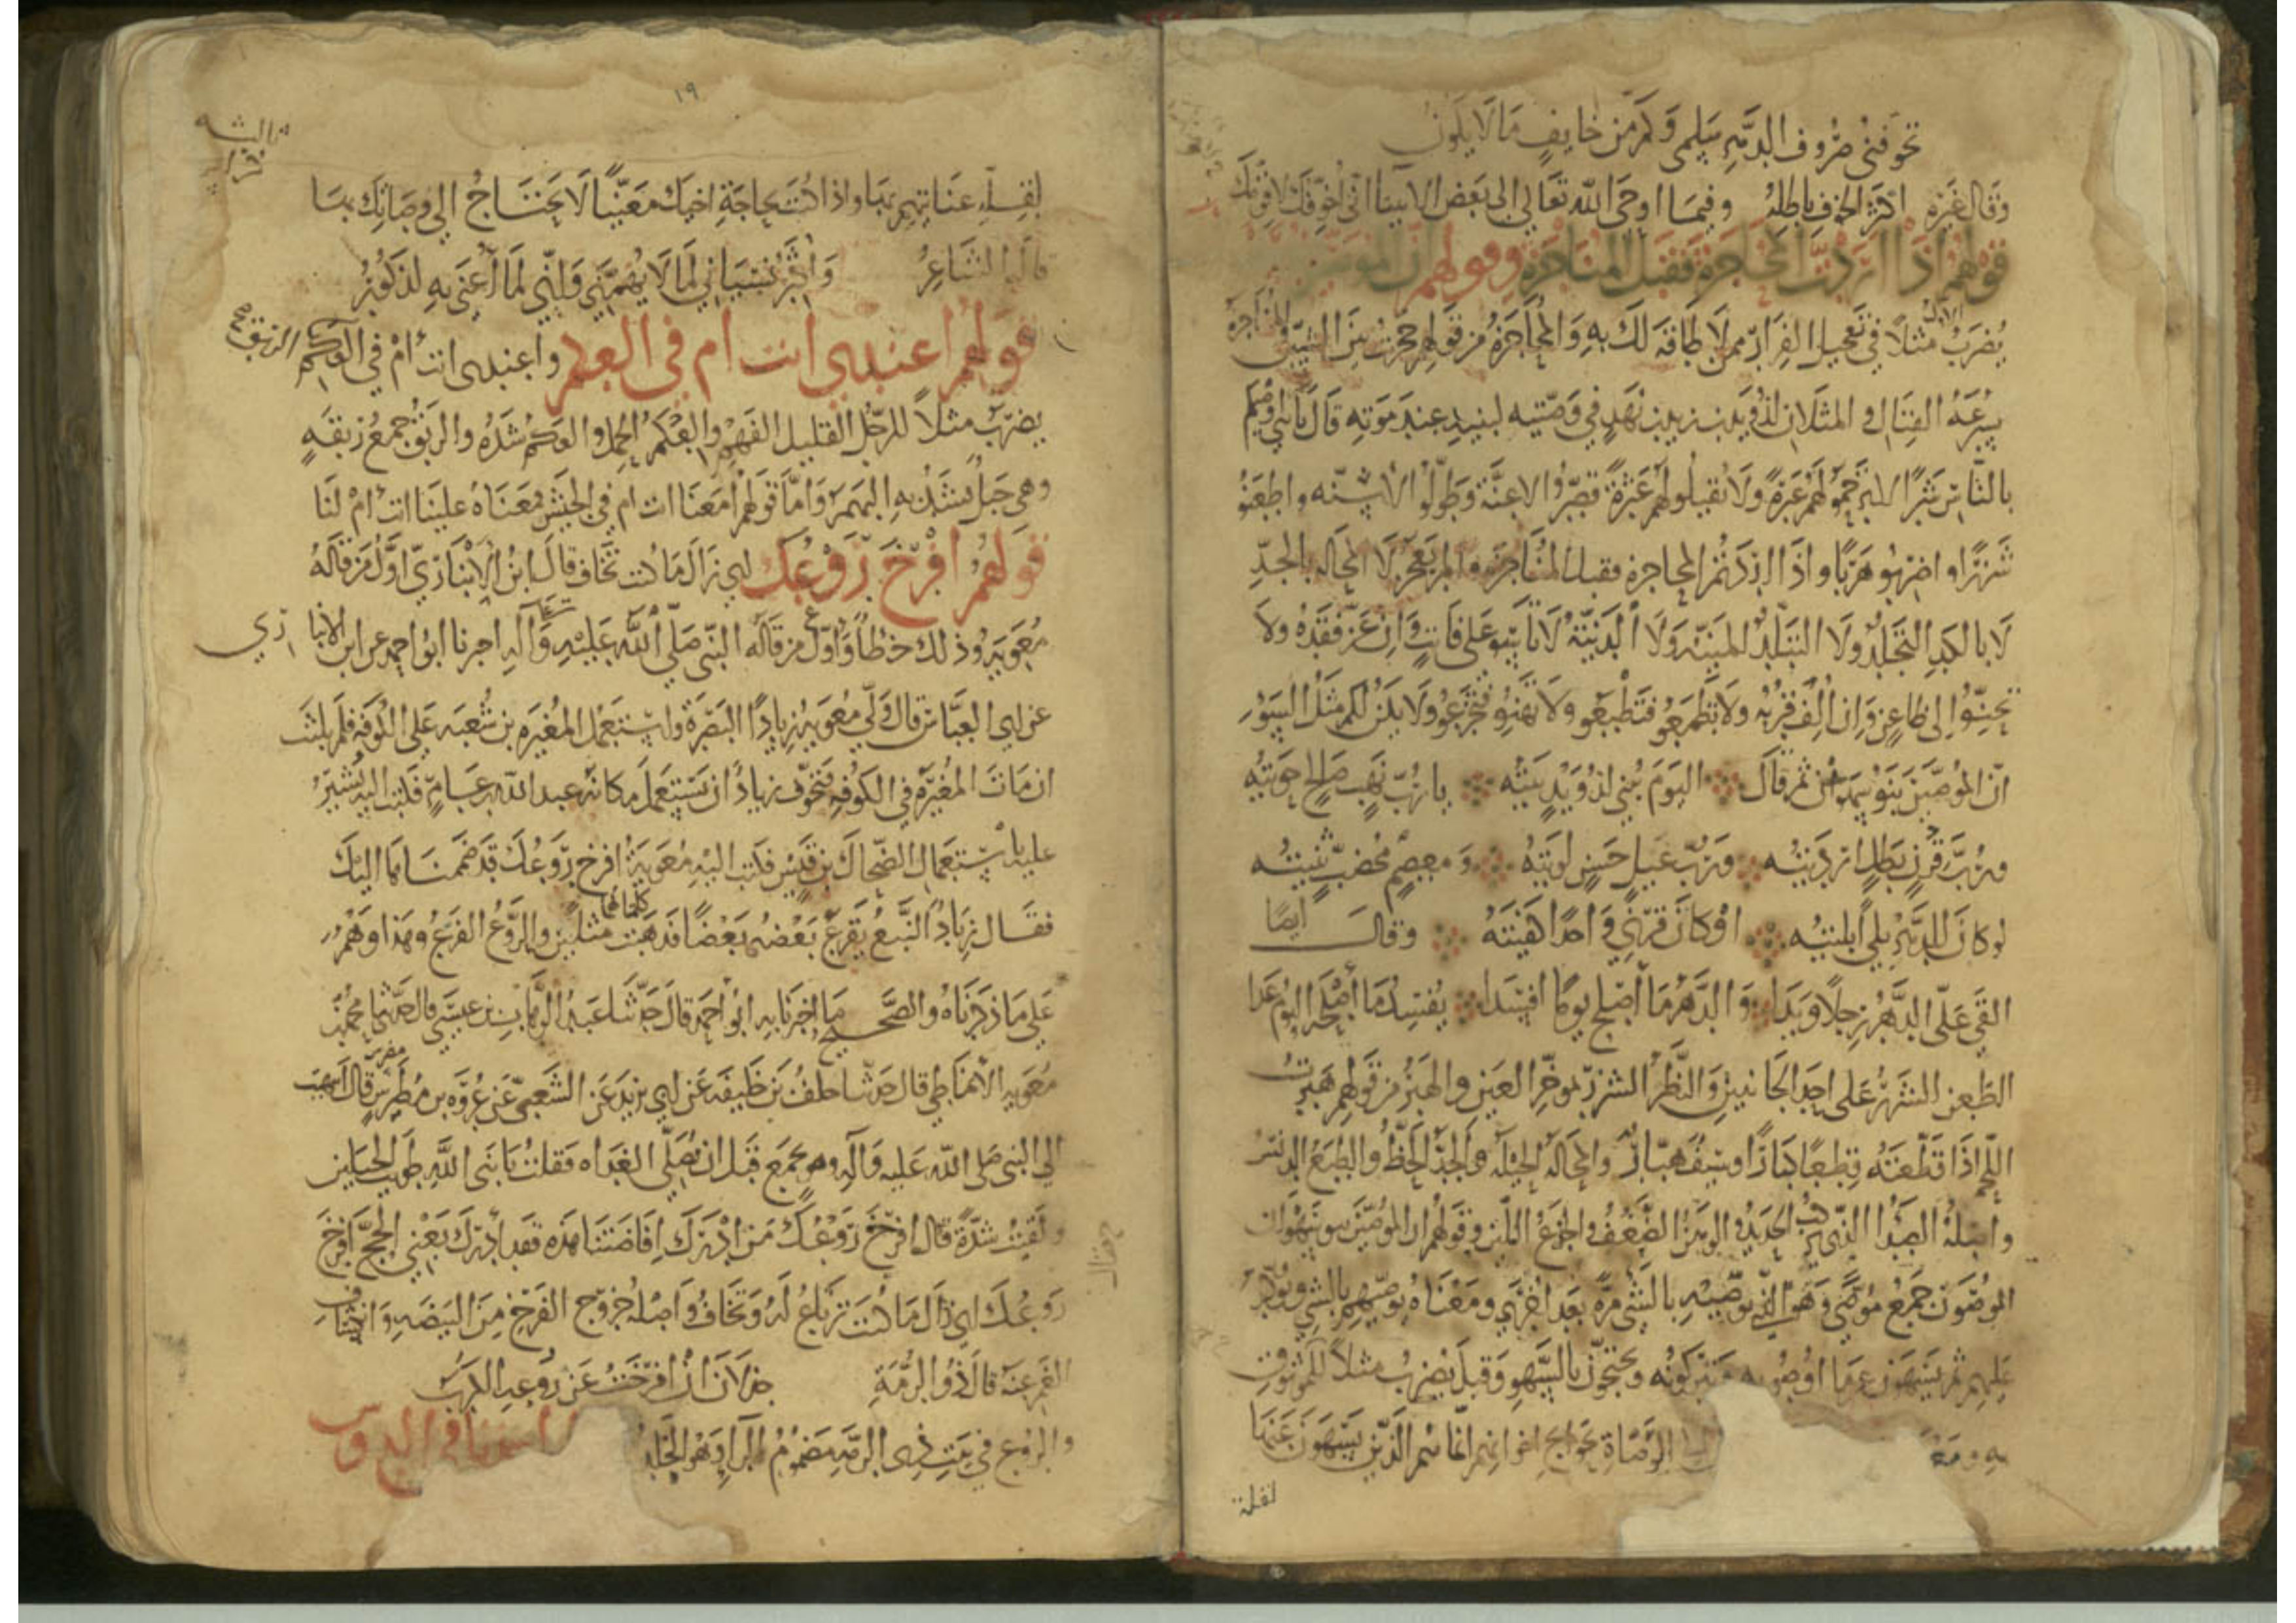 تخوفني صروف الدهر سلمى وكم من خايف ما لا يكون
وقال غيره اكثر الخوف باطله وفيما اوحى الله تعالى الى بعض الانبيا اني
قولهم اذا اردت المحاجزة فقبل المناجزة وقولهم ان الموصين
يضرب الاول مثلا في تعجيل الفرار ممن لا طاقة لك به والمحاجزة من قولهم حجزت بين الشيئين والمناجزة
سرعة القتال والمثلان لذويد بن زيد بن نهد في وصيته لبنيه عند موته قال يا بني اوصيكم
بالناس شرا لا ترحموا لهم عبرة ولا تقيلوا لهم عثرة قصروا الاعنة وطولوا الاسنه واطعنو
شزرا واضربو هبرا واذا اردتم المحاجزه فقبل المناجزه والمر يعجز لا المحاله بالجد
لا بالكد التجلد ولا التبلد المنيه ولا الدنيه لا تاسو على فايت وان عز فقده ولا
تحنوا الى ظاعن وان الف قربه ولا تطمعو فتطبعو ولا تهنو فتجزعو ولا يكن لكم مثل السوء
ان الموصين بنو سهوان ثم قال اليوم يبنى لذويد بيته يا رب نهب صالح حويته
ورب قرن بطل ارديته ورب غيل حسن لويته ومعصم مخضب ثنيته
لو كان للدهر بلى ابليته او كان قرني واحدا كفيته وقال ايضا
القى علي الدهر رجلا ويدا والدهر ما اصلح يوما افسدا يفسد ما اصلحه اليوم غدا
الطعن الشزر على احد الجانبين والنظر الشزر بموخر العين والهبر من قولهم هبرت
اللحم اذا قطعته قطعا كبارا وسيف هبار والمحاله الحيله والجد الحظ والطبع الدنس
واصله الصدا الذي يركب الحديد والوهن الضعف والجزع وقولهم ان الموصين بنو سهوان
الموصون جمع موصى وهو الذي يوصيه بالشي مرة بعد اخرى ومعناه يوصيهم بالشي ويوكد
عليهم ثم يسهون عما اوصو به فيتركونه ويحتجون بالسهو وقيل يضرب مثلا للموثوق
به ومعناه الوصاة بحوايج اخوانهم انما هم الذين يسهون عنها
لقلة
١٩
لقلة عنايتهم بها واذا كنت بحاجة اخيك معنيا لا تحتاج الى وصاتك بها
قال الشاعر واكثر نسياني لما لا يهمني واني لما اعنى به لذكور
قولهم اعندي انت ام في العكم واعندي انت ام في العكم الربق
يضرب مثلا للرجل القليل الفهم والعكم الحمل والعكم شده والربق جمع ربقه
وهي حبل يشد به البهم واما قولهم امعنا انت ام في الجيش فمعناه علينا انت ام لنا
قولهم افرخ روعك اي زال ما كنت تخاف قال ابن الانباري اول من قاله
معوية وذلك خطا واول من قاله النبي صلى الله عليه واله اخبرنا ابو احمد عن ابن الانباري
عن ابي العباس قال ولى معويه زيادا البصرة واستعمل المغيره بن شعبه على الكوفه فلم يلبث
ان مات المغيرة في الكوفه فتخوف زياد ان يستعمل مكانه عبد الله بن عامر فكتب اليه يشير
عليه باستعمال الضحاك بن قيس فكتب اليه معوية افرخ روعك قد ضممناها اليك
فقال زياد النبع يقرع بعضه بعضا فذهبت كلمتاهما مثلين والروع الفزع وهذا وهم
على ما ذكرناه والصحيح ما اخبرنا به ابو احمد قال حدثنا عبد الوهاب بن عيسى قال حدثنا محمد بن
معويه الانماطي قال حدثنا خلف بن خليفه عن ابي يزيد عن الشعبي عن عروه بن مضرس قال انتهيت
الى النبي صلى الله عليه واله وهو بجمع قبل ان يصلي الغداه فقلت يا نبي الله طويت الجبلين
ولقيت شدة قال افرخ روعك من ادرك افاضتنا هذه فقد ادرك يعني الحج افرخ
روعك اي زال ما كنت ترتاع له وتخاف واصله خروج الفرخ من البيضه وانكشاف
الغم عنه قال ذو الرمة جذلان ان افرخت عن روعه الكرب
والروع في بيت ذي الرمه مضموم الرا وهو الخلد